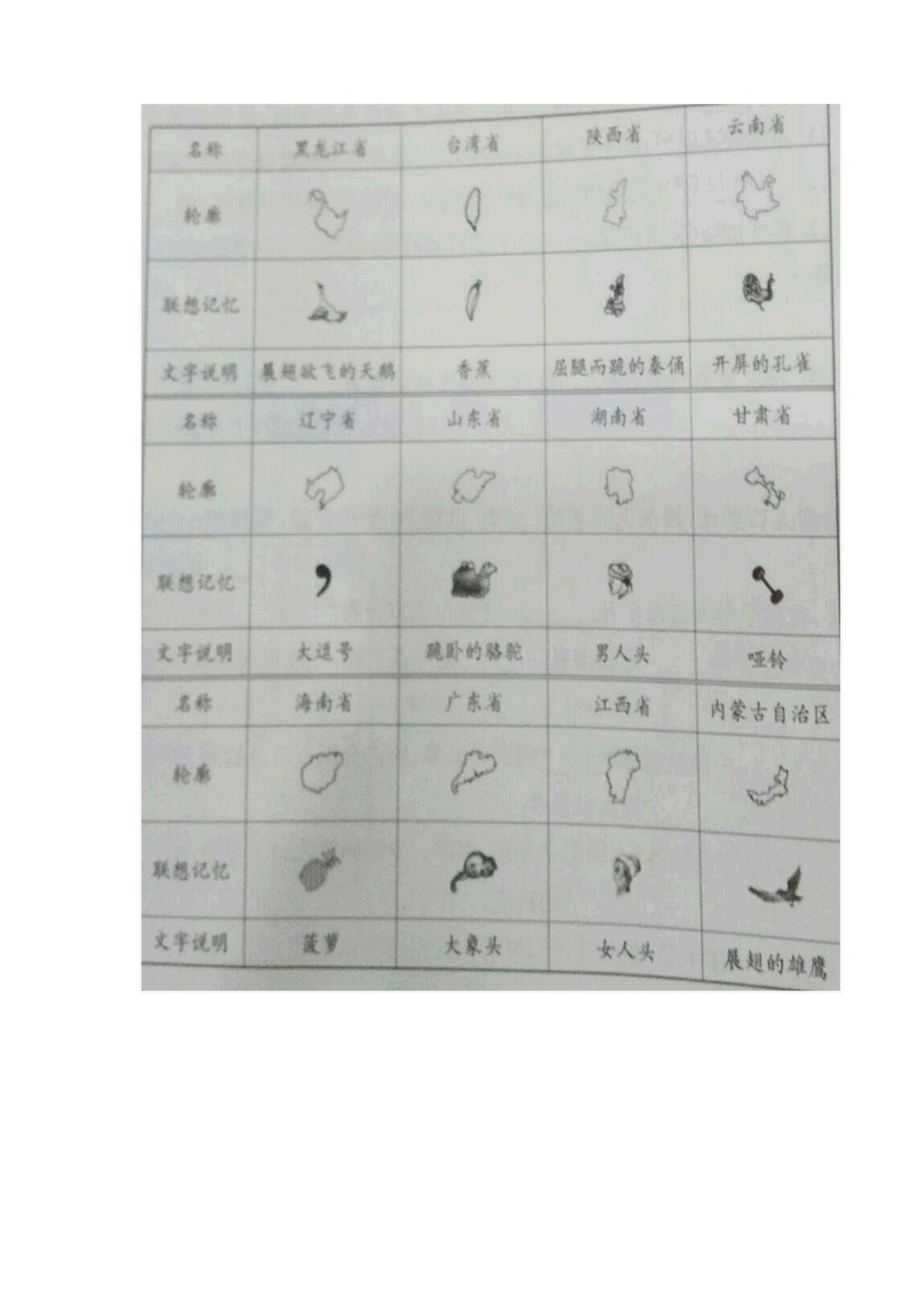 名称 黑龙江省 台湾省 陕西省 云南省
轮廓
联想记忆
文字说明 展翅欲飞的天鹅 香蕉 屈腿而跪的秦俑 开屏的孔雀
名称 辽宁省 山东省 湖南省 甘肃省
轮廓
联想记忆
文字说明 大逗号 跪卧的骆驼 男人头 哑铃
名称 海南省 广东省 江西省 内蒙古自治区
轮廓
联想记忆
文字说明 菠萝 大象头 女人头 展翅的雄鹰